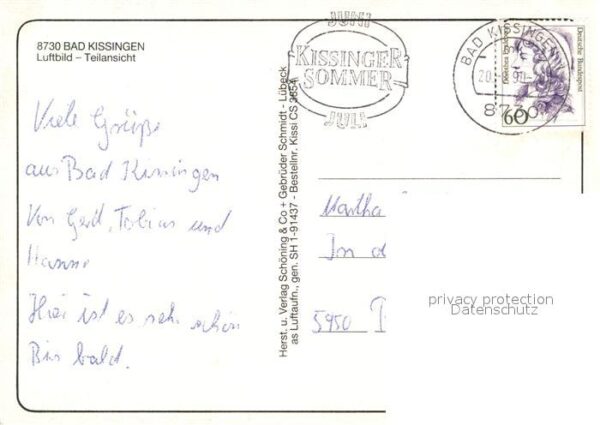 8730 BAD KISSINGEN
Luftbild – Teilansicht
Viele Grüße
aus Bad Kissingen
Von Gerd, Tobias und
Hanne
Hier ist es sehr schön
Bis bald.
Herst. u. Verlag Schöning & Co + Gebrüder Schmidt - Lübeck
as Luftaufn., gen. SH 1-91437 - Bestellnr. Kissi CS 3654
JUNI
KISSINGER
SOMMER
JULI
BAD KISSINGEN
20
8730
Deutsche Bundespost
60
Martha
5950
privacy protection
Datenschutz